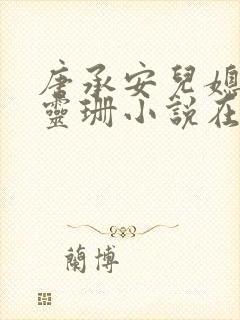 唐承安兒媳
靈珊小說在
蘭博